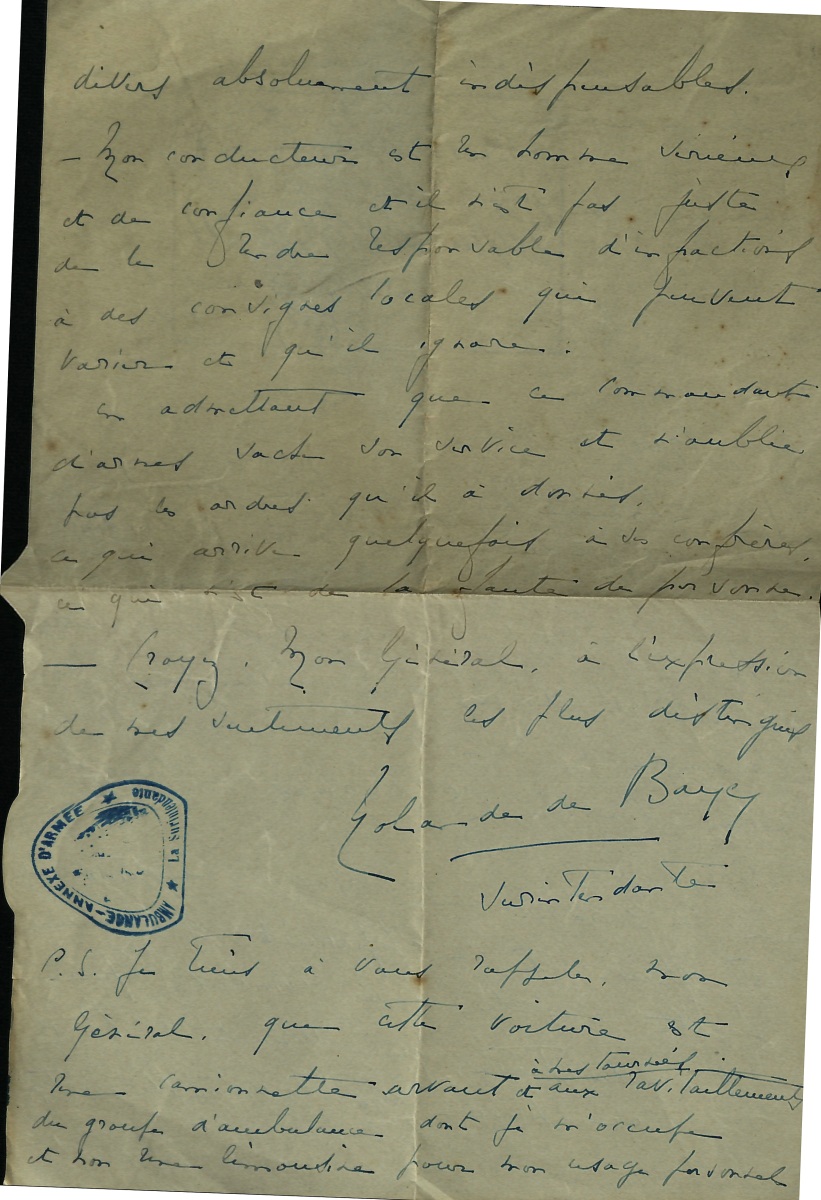 divers absolument indispensables.
— Mon conducteur est un homme sérieux
et de confiance et il n'est pas juste
de le rendre responsable d'infractions
à des consignes locales qui peuvent
varier et qu'il ignore.
en admettant que ce commandant
d'armes sache son service et n'oublie
pas les ordres qu'il a donnés,
ce qui arrive quelquefois à ses confrères,
ce qui n'est de la faute de personne.
— Croyez, Mon Général, à l'expression
de mes sentiments les plus distingués
Yolande de
Surintendante
AMBULANCE-ANNEXE D'ARMÉE ★ La Surintendante ★
P.S. Je tiens à vous rappeler, mon
Général, que cette voiture est
à mes tournées
une camionnette servant et aux ravitaillements
du groupe d'ambulances dont je m'occupe
et non une limousine pour mon usage personnel